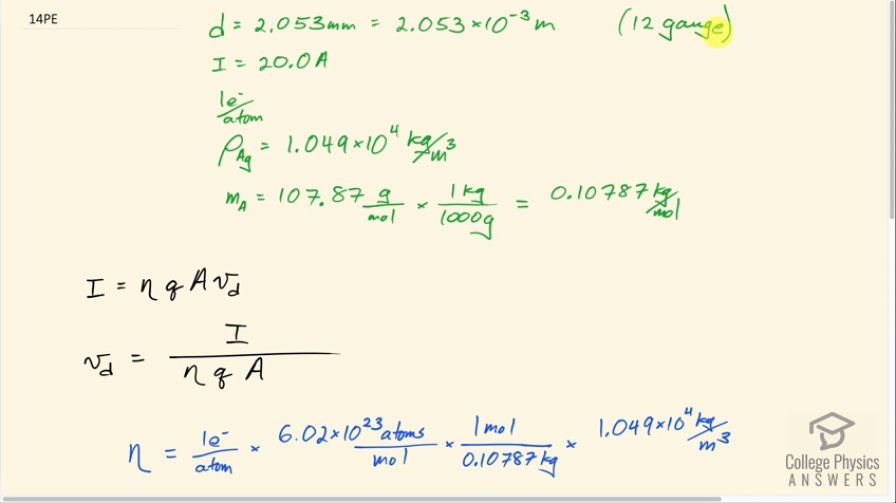 14PE
d = 2.053 mm = 2.053 × 10⁻³ m (12 gauge)
I = 20.0 A
1e⁻/atom
ρ_Ag = 1.049 × 10⁴ kg/m³
m_A = 107.87 g/mol × 1 kg/1000 g = 0.10787 kg/mol
I = n q A v_d
v_d = I/(n q A)
n = 1e⁻/atom × 6.02 × 10²³ atoms/mol × 1 mol/0.10787 kg × 1.049 × 10⁴ kg/m³
College Physics
ANSWERS